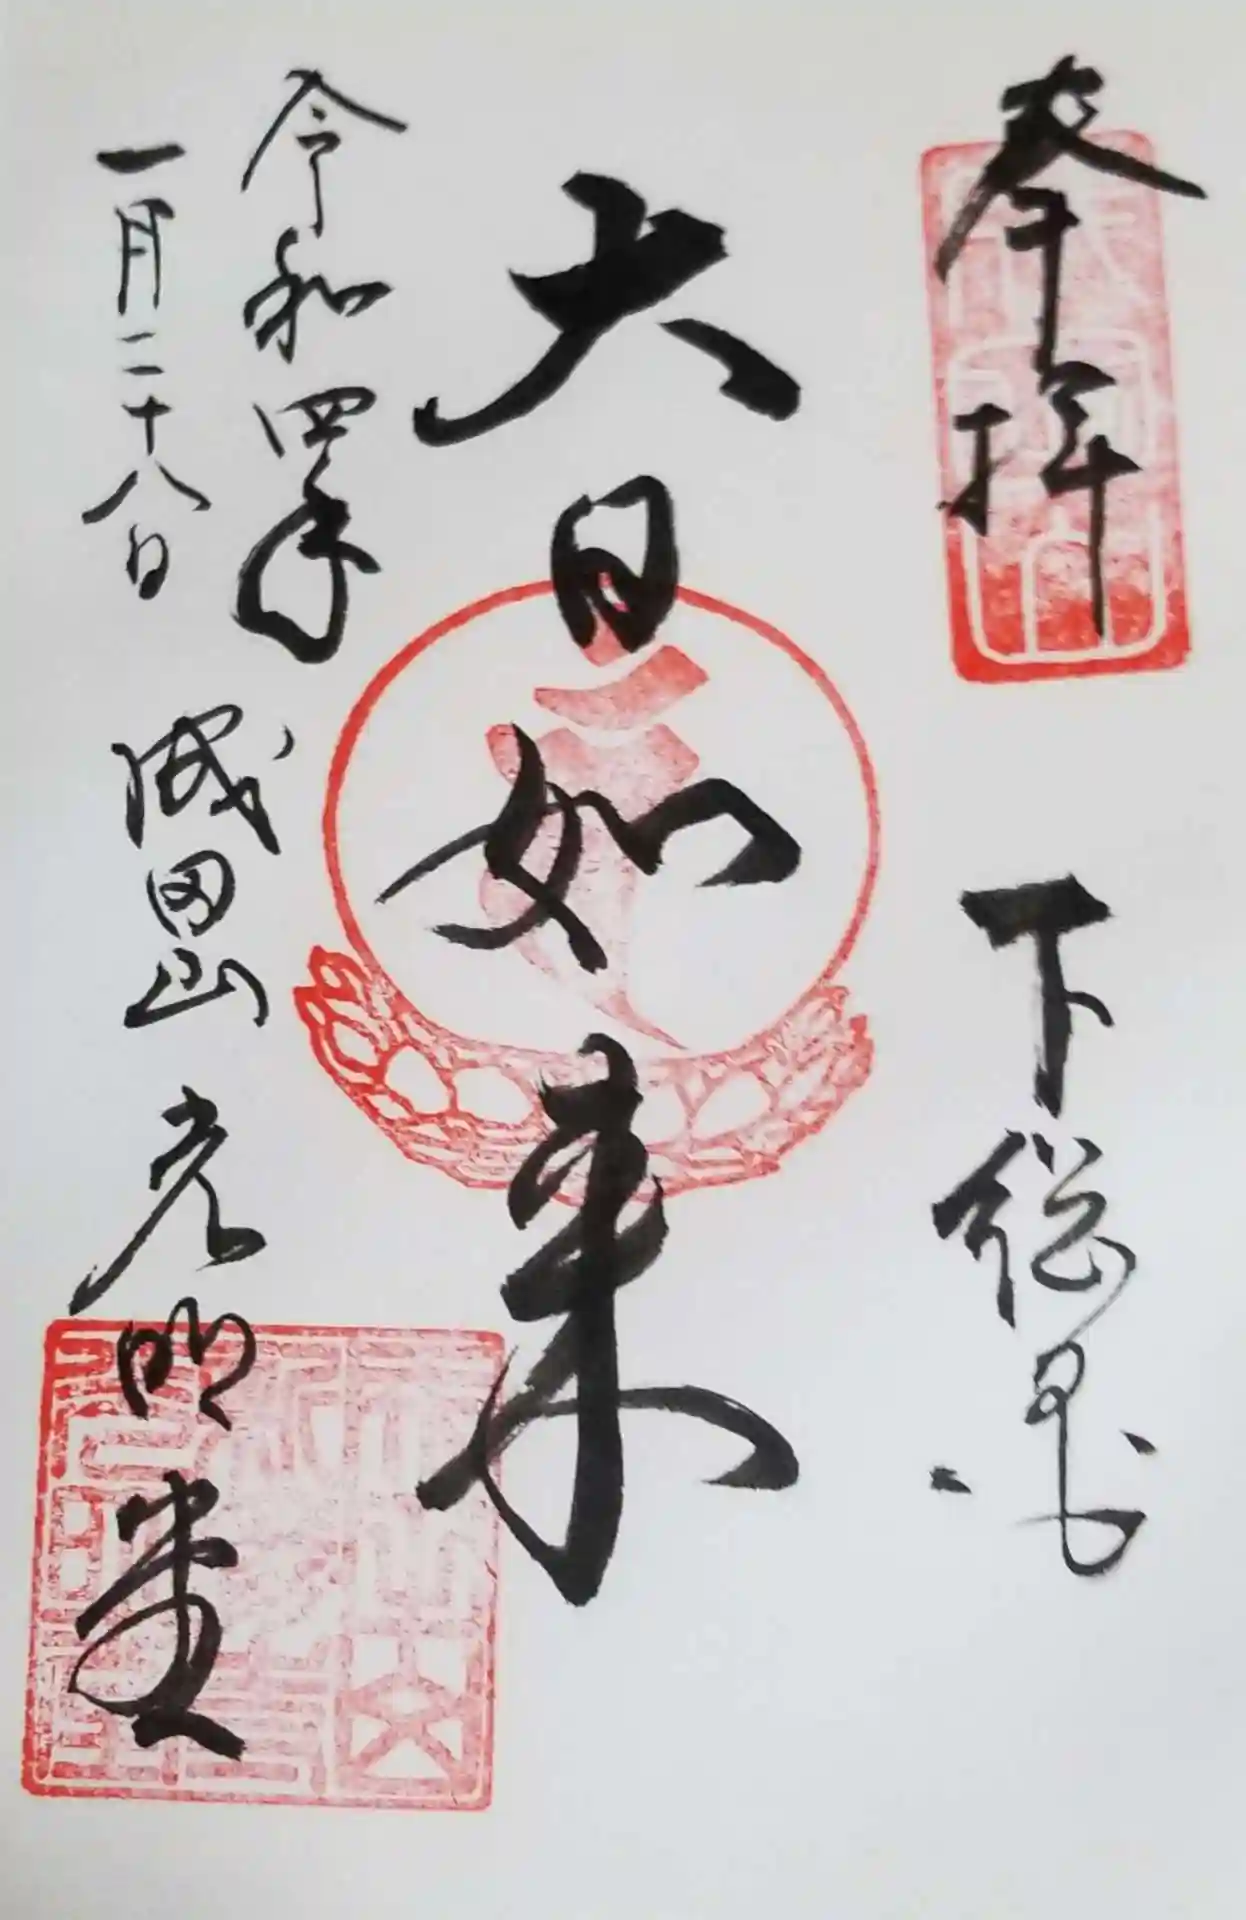 奉拝
下総國
大日如来
令和四年
一月二十八日
成田山 光明堂